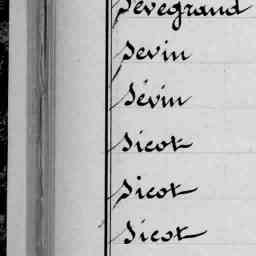 Sevegrand
Sevin
Sévin
Sicot
Sicot
Sicot